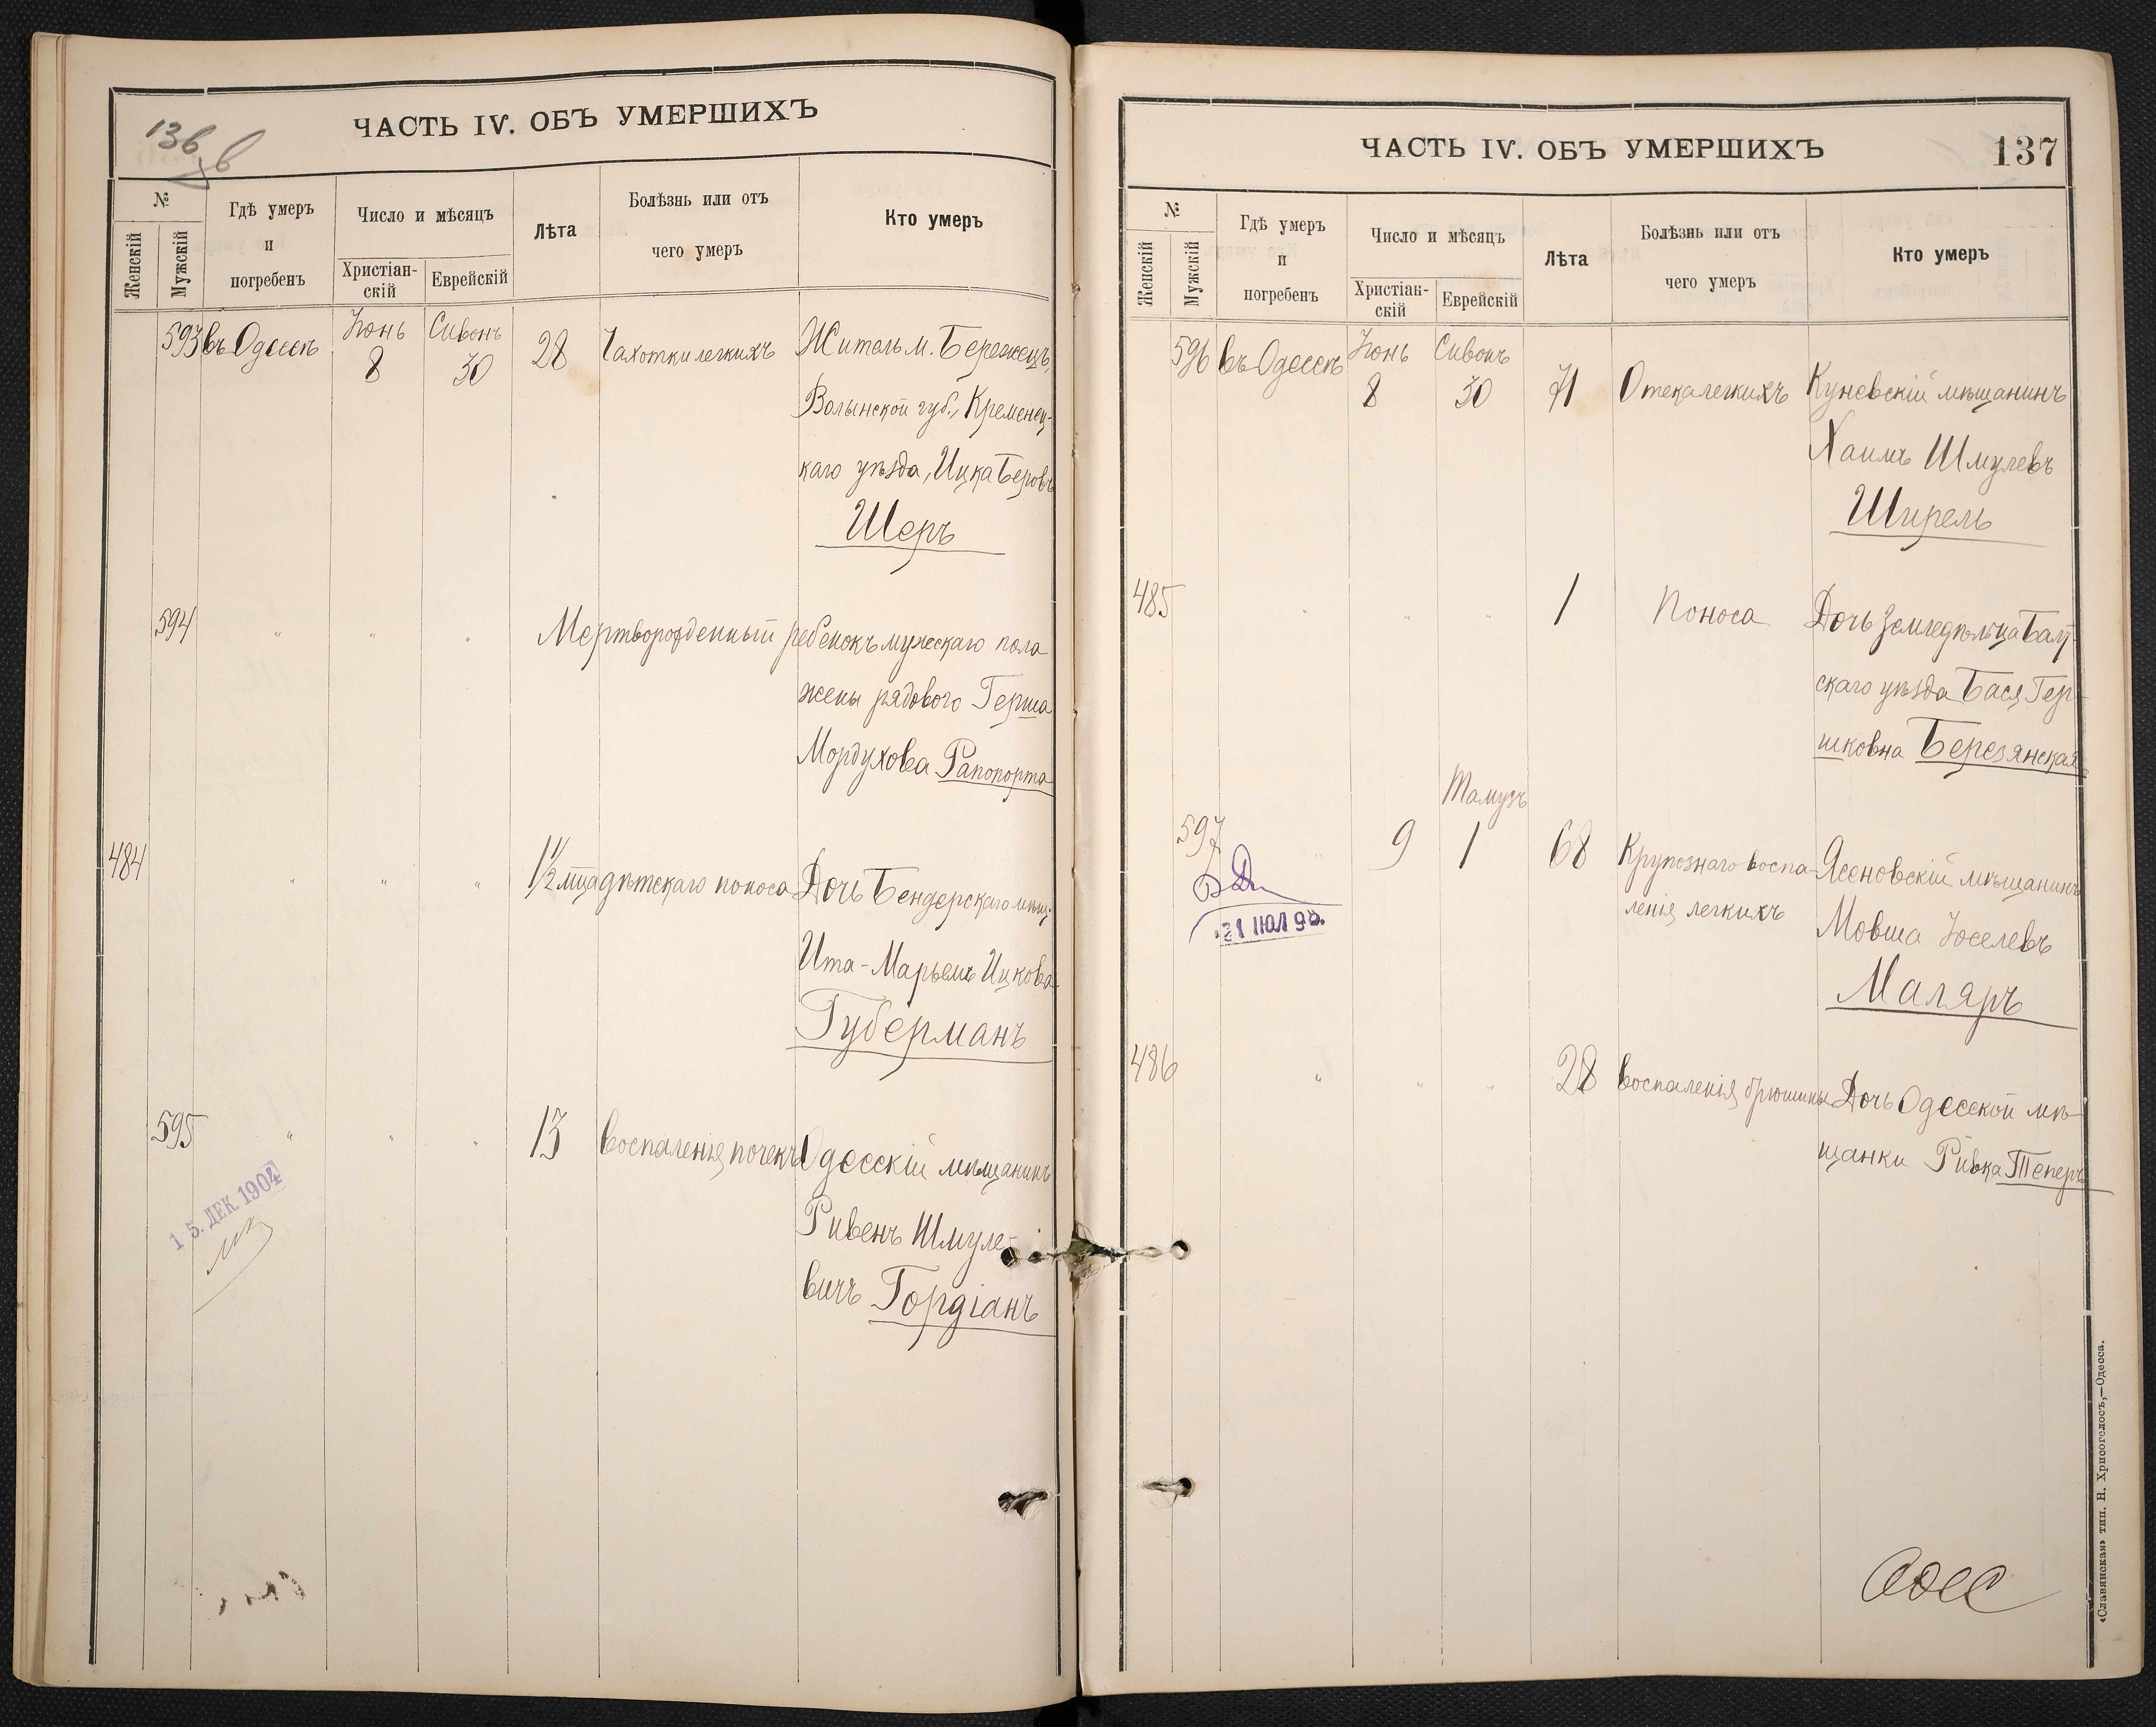 136
ЧАСТЬ IV. ОБЪ УМЕРШИХЪ
№
Женскій
Мужскій
Гдѣ умеръ
и
погребенъ
Число и мѣсяцъ
Христіан-
скій
Еврейскій
Лѣта
Болѣзнь или отъ
чего умеръ
Кто умеръ
593 въ Одессѣ Іюнь 8 Сивонъ 30 28 Чахотки легкихъ Житель м. Бережецъ,
Волынской губ., Кременец-
каго уѣзда, Ицка Беровъ
Шеръ
594 " " " Мертворожденный ребенокъ мужескаго пола
жены рядового Герша
Мордухова Рапопорта
484 " " " 1½ мца дѣтскаго поноса Дочь Бендерскаго мѣщ.
Ита-Марьемъ Ицкова
Губерманъ
595 " " " 13 Воспаленія почекъ Одесскій мѣщанинъ
Рувенъ Шмуле-
вичъ Гордіанъ
15. ДЕК 1904
ЧАСТЬ IV. ОБЪ УМЕРШИХЪ
137
№
Женскій
Мужскій
Гдѣ умеръ
и
погребенъ
Число и мѣсяцъ
Христіан-
скій
Еврейскій
Лѣта
Болѣзнь или отъ
чего умеръ
Кто умеръ
596 въ Одессѣ Іюнь 8 Сивонъ 30 71 Отека легкихъ Куневскій мѣщанинъ
Хаимъ Шмулевъ
Шпрель
485 " " " 1 Поноса Дочь земледѣльца Балт-
скаго уѣзда Бася Гер-
шковна Березянская
Тамузъ
597 " 9 1 68 Крупознаго воспа- Ясеновскій мѣщанинъ
ленія легкихъ Мовша Іоселевъ
Маляръ
21 ІЮЛ 98.
486 " " " 28 Воспаленія брюшины Дочь Одесской мѣ-
щанки Ривка Теперъ
«Славянская» тип. Н. Хрисогелосъ,—Одесса.